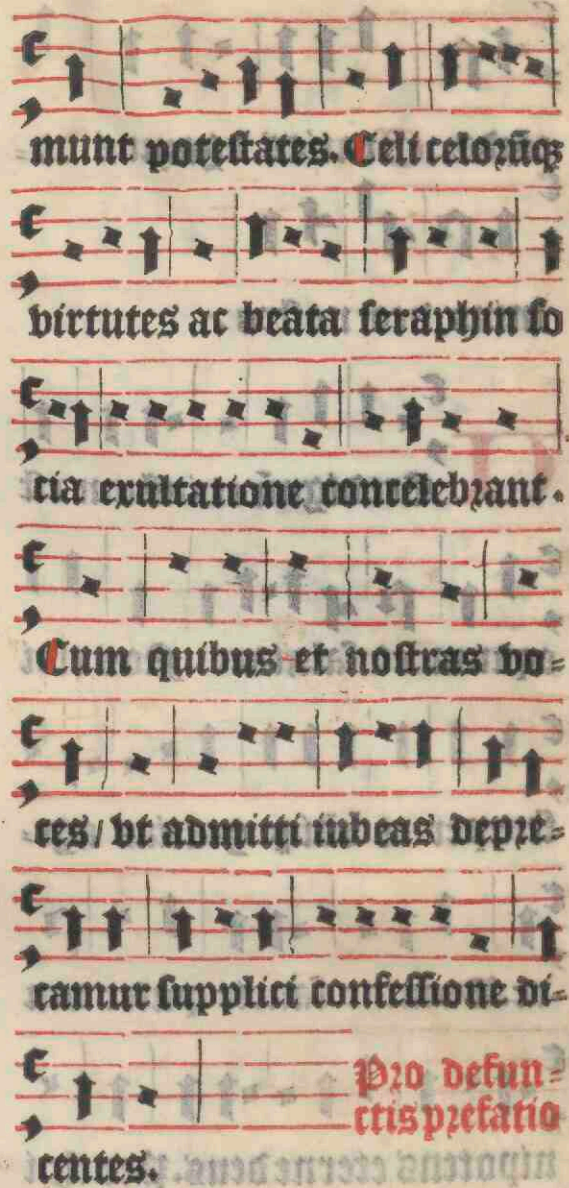 munt poteſtates. Celi celoꝝūqꝫ
virtutes ac beata ſeraphin ſo
cia exultatione concelebꝛant.
Cum quibus et noſtras vo⸗
ces/ vt admitti iubeas depꝛe⸗
camur ſupplici confeſſione di⸗
centes.
Pꝛo defun⸗
ctis pꝛefatio